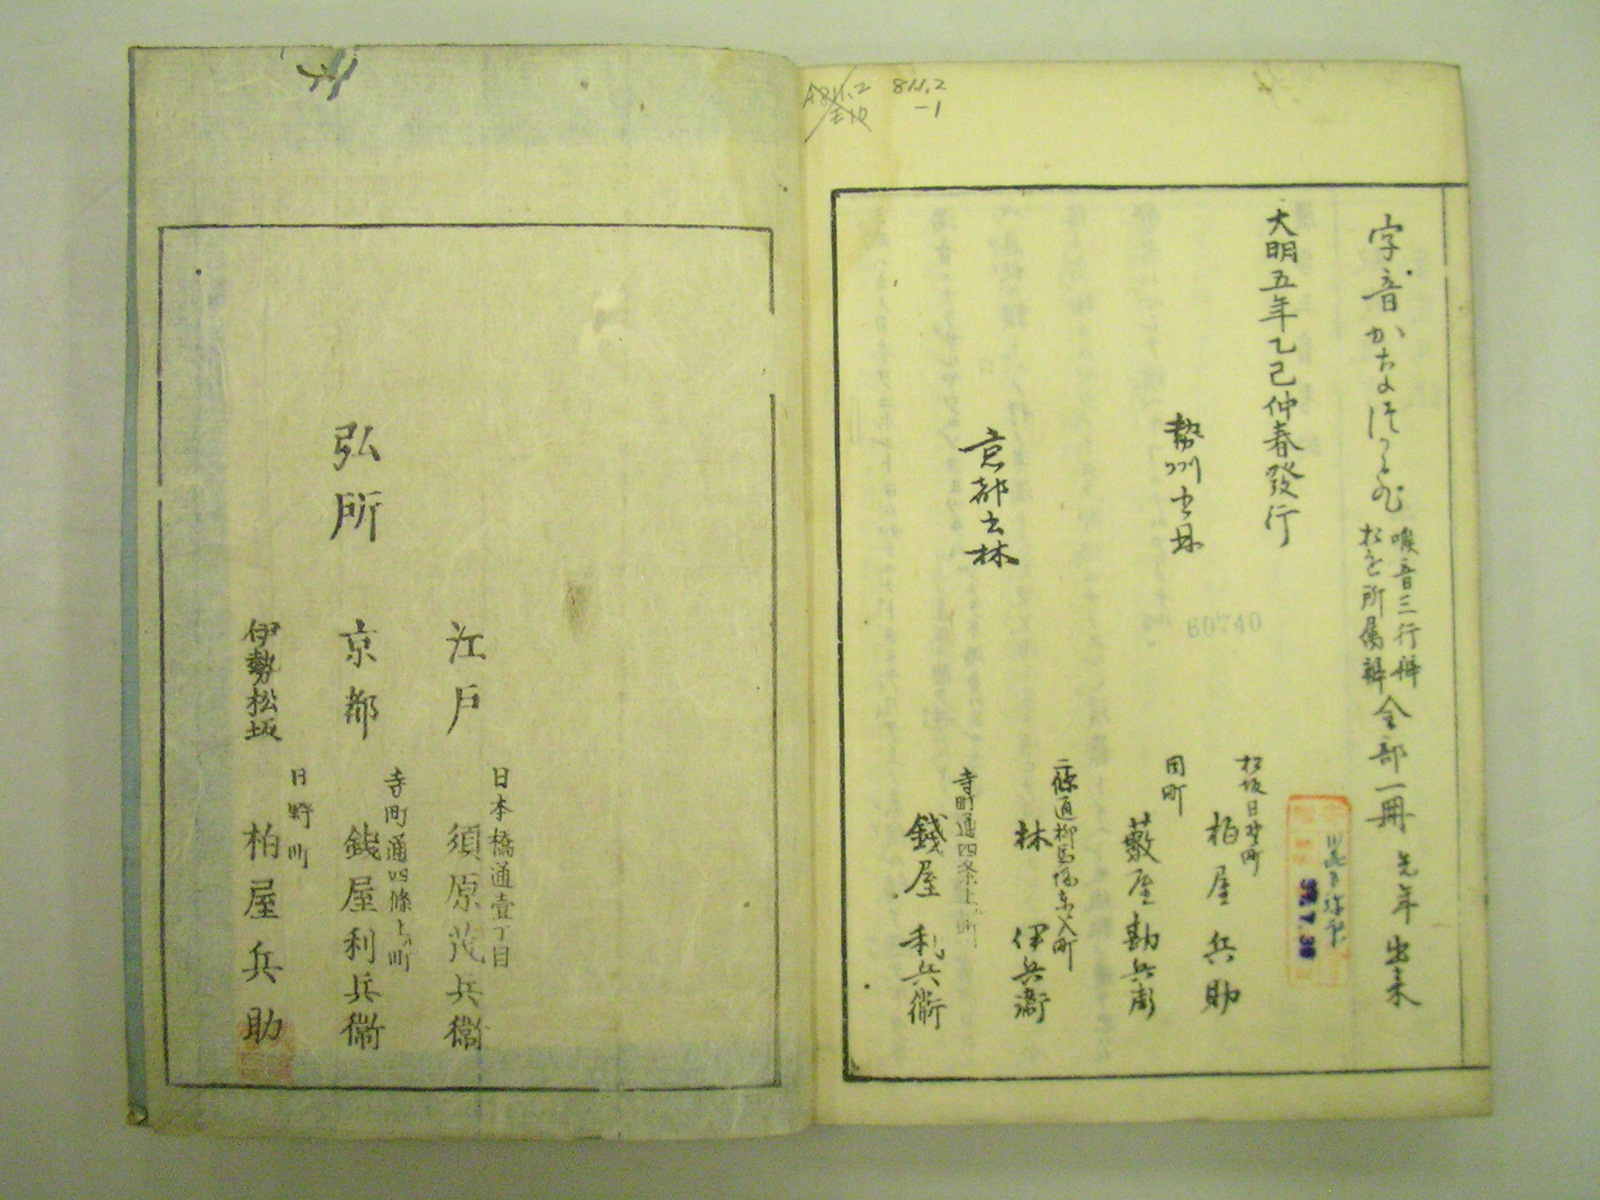 811.2
-1
字音かなつかひ 喉音三行辨 おを所属辨 全部一冊 先年出来
大明五年乙巳仲春發行
勢州書林
松坂日野町
柏屋兵助
同町
藪屋勘兵衛
京都書林
二條通柳馬場東入町
林伊兵衛
寺町通四条上ル町
錢屋利兵衛
60740
37.7.30
弘所
江戸
日本橋通壹丁目
須原茂兵衞
京都
寺町通四條上ル町
銭屋利兵衞
伊勢松坂
日野町
柏屋兵助